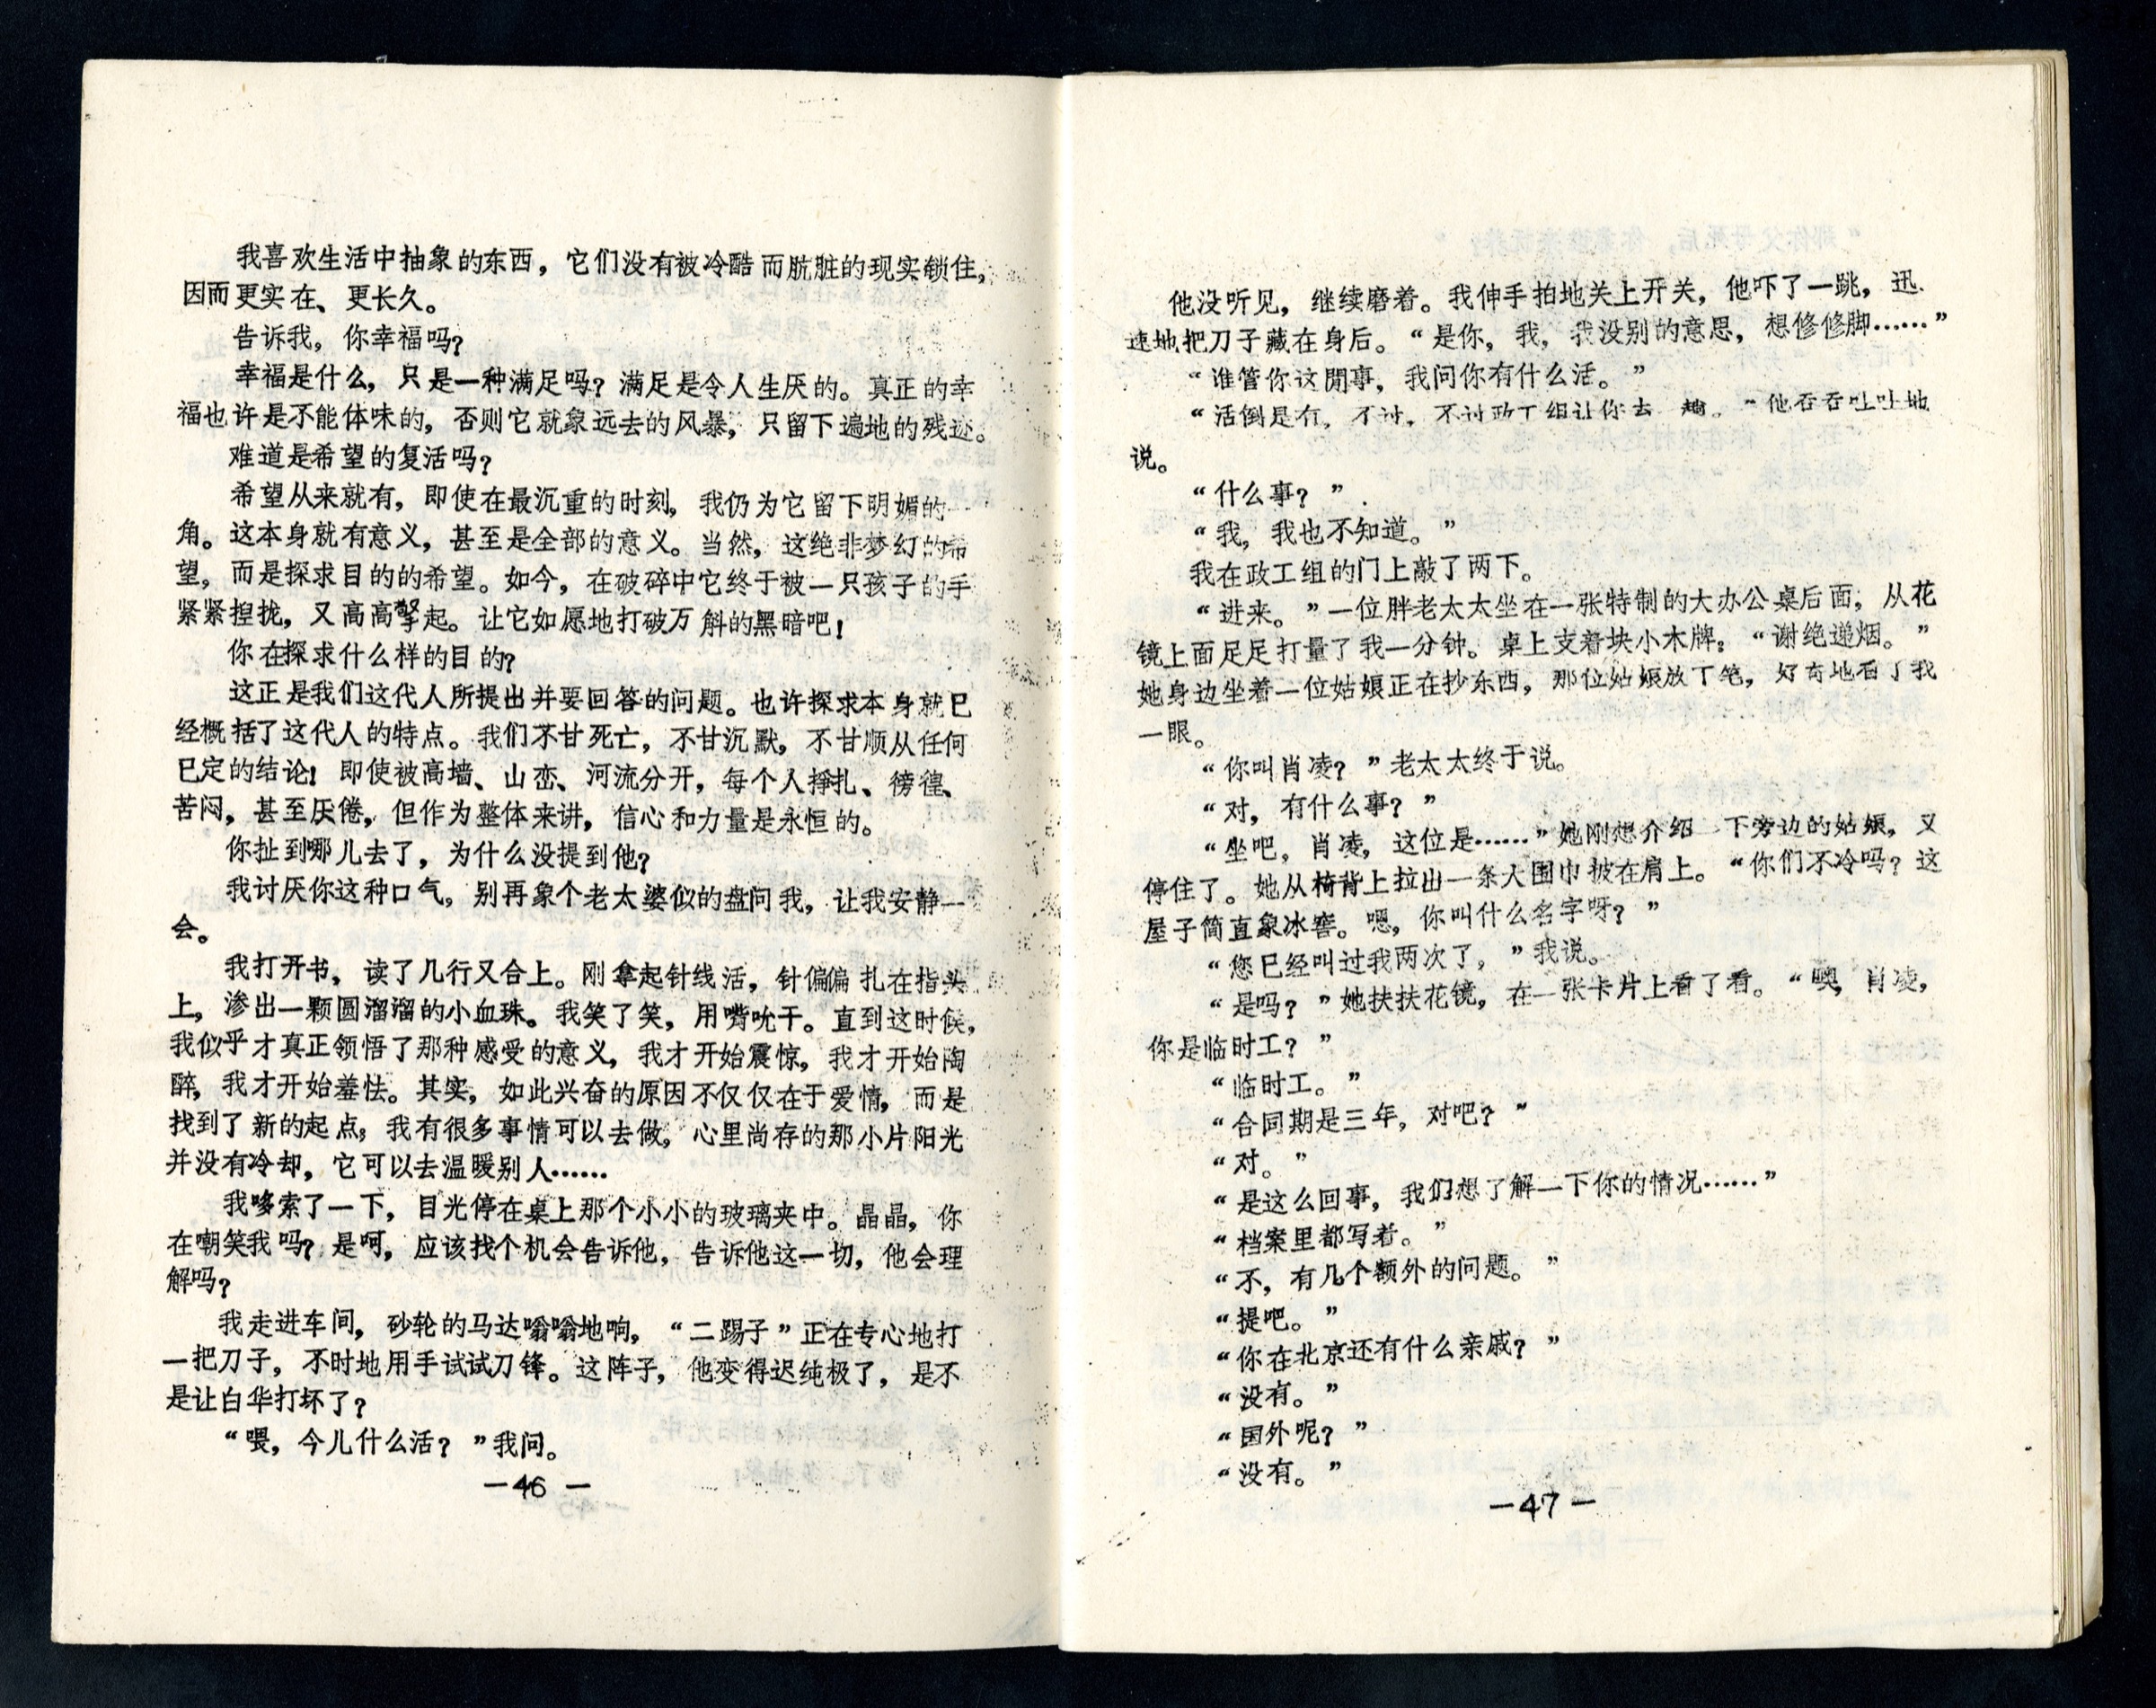 我喜欢生活中抽象的东西，它们没有被冷酷而肮脏的现实锁住，
因而更实在、更长久。
告诉我，你幸福吗？
幸福是什么，只是一种满足吗？满足是令人生厌的。真正的幸
福也许是不能体味的，否则它就象远去的风暴，只留下遍地的残迹。
难道是希望的复活吗？
希望从来就有，即使在最沉重的时刻，我仍为它留下明媚的一
角。这本身就有意义，甚至是全部的意义。当然，这绝非梦幻的希
望，而是探求目的的希望。如今，在破碎中它终于被一只孩子的手
紧紧捏拢，又高高擎起。让它如愿地打破万斛的黑暗吧！
你在探求什么样的目的？
这正是我们这代人所提出并要回答的问题。也许探求本身就已
经概括了这代人的特点。我们不甘死亡，不甘沉默，不甘顺从任何
已定的结论！即使被高墙、山峦、河流分开，每个人挣扎、徬徨、
苦闷，甚至厌倦，但作为整体来讲，信心和力量是永恒的。
你扯到哪儿去了，为什么没提到他？
我讨厌你这种口气，别再象个老太婆似的盘问我，让我安静一
会。
我打开书，读了几行又合上。刚拿起针线活，针偏偏扎在指头
上，渗出一颗圆溜溜的小血珠。我笑了笑，用嘴吮干。直到这时候，
我似乎才真正领悟了那种感受的意义，我才开始震惊，我才开始陶
醉，我才开始羞怯。其实，如此兴奋的原因不仅仅在于爱情，而是
找到了新的起点；我有很多事情可以去做，心里尚存的那小片阳光
并没有冷却，它可以去温暖别人……
我哆索了一下，目光停在桌上那个小小的玻璃夹中。晶晶，你
在嘲笑我吗？是呵，应该找个机会告诉他，告诉他这一切，他会理
解吗？
我走进车间，砂轮的马达嗡嗡地响，“二踢子”正在专心地打
一把刀子，不时地用手试试刀锋。这阵子，他变得迟纯极了，是不
是让白华打坏了？
“喂，今儿什么活？”我问。
—46—
他没听见，继续磨着。我伸手拍地关上开关，他吓了一跳，迅
速地把刀子藏在身后。“是你，我，我没别的意思，想修修脚……”
“谁管你这閒事，我问你有什么活。”
“活倒是有，不过，不过政工组让你去一趟。”他吞吞吐吐地
说。
“什么事？”
“我，我也不知道。”
我在政工组的门上敲了两下。
“进来。”一位胖老太太坐在一张特制的大办公桌后面，从花
镜上面足足打量了我一分钟。桌上支着块小木牌：“谢绝递烟。”
她身边坐着一位姑娘正在抄东西，那位姑娘放下笔，好奇地看了我
一眼。
“你叫肖凌？”老太太终于说。
“对，有什么事？”
“坐吧，肖凌，这位是……”她刚想介绍一下旁边的姑娘，又
停住了。她从椅背上拉出一条大围巾披在肩上。“你们不冷吗？这
屋子简直象冰窖。嗯，你叫什么名字呀？”
“您已经叫过我两次了，”我说。
“是吗？”她扶扶花镜，在一张卡片上看了看。“噢，肖凌，
你是临时工？”
“临时工。”
“合同期是三年，对吧？”
“对。”
“是这么回事，我们想了解一下你的情况……”
“档案里都写着。”
“不，有几个额外的问题。”
“提吧。”
“你在北京还有什么亲戚？”
“没有。”
“国外呢？”
“没有。”
—47—